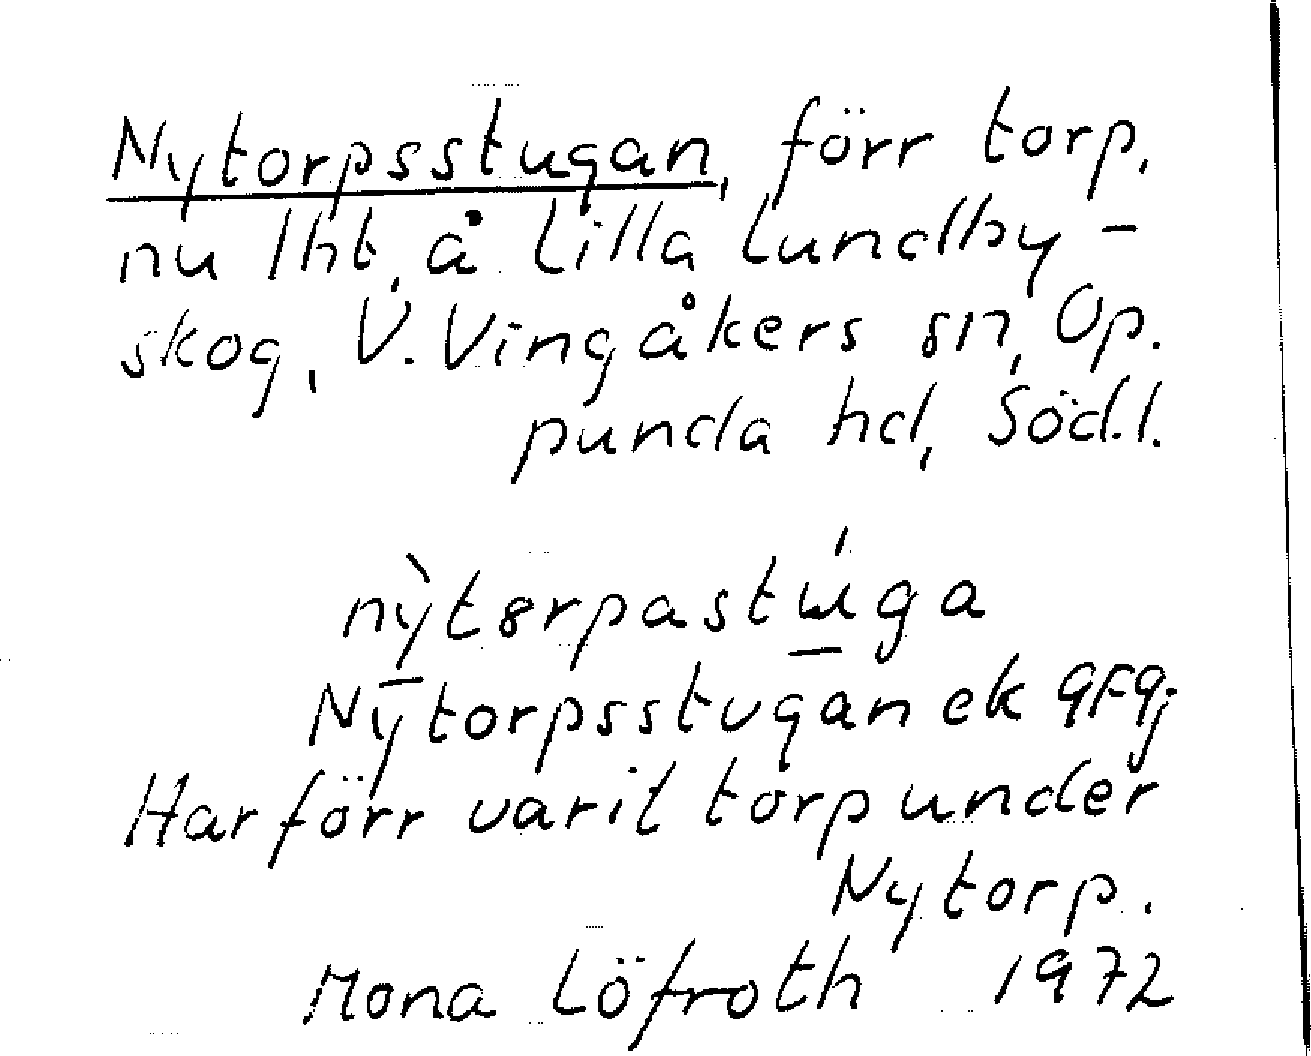 Nytorpsstugan, förr torp,
nu lht, å Lilla Lundby-
skog, V. Vingåkers sn, Op.
punda hd, Söd.l.
Nytorpsstugan ek
Har förr varit torp under
Nytorp.
Mona Löfroth 1972